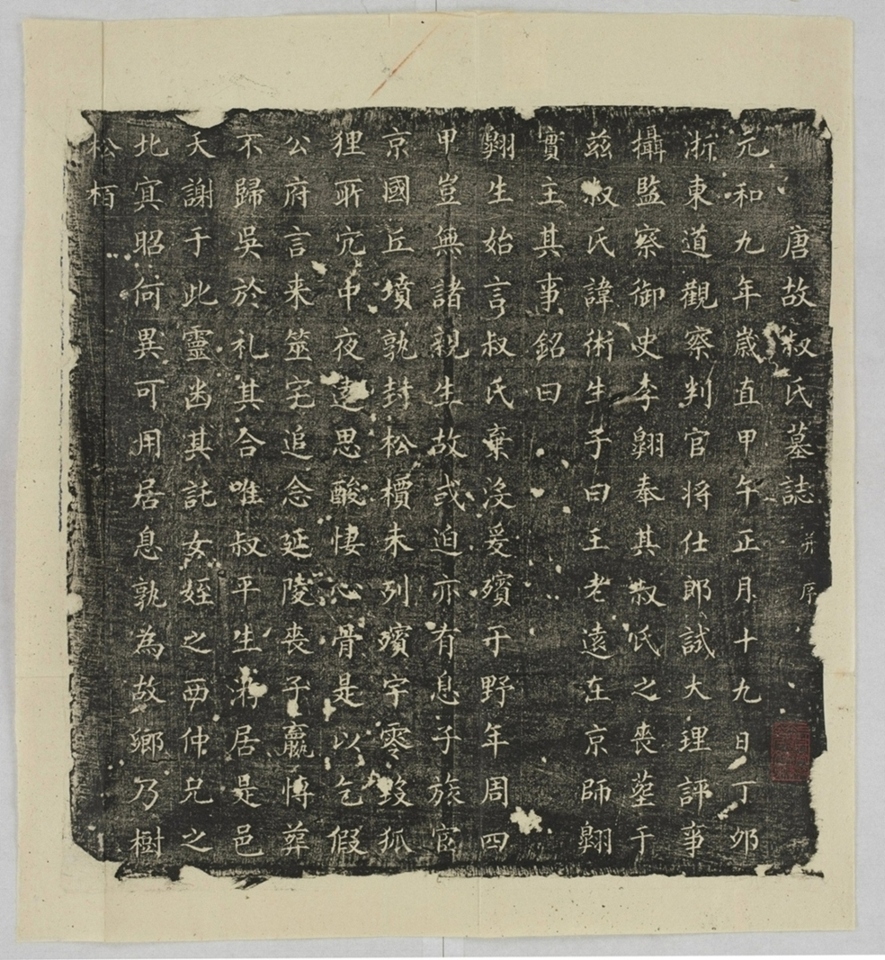 唐故叔氏墓誌 并序
元和九年歲直甲午正月十九日丁卯
浙東道觀察判官將仕郎試大理評事
攝監察御史李翱奉其叔氏之喪塟于
茲叔氏諱術生子曰王老遠在京師翱
實主其事銘曰
翱生始言叔氏棄沒爰殯于野年周四
甲豈無諸親生故或迫亦有息子旅宦
京國丘墳孰封松檟未列殯宇零毀狐
狸所穴中夜遠思酸悽心骨是以乞假
公府言来筮宅追念延陵喪子嬴博葬
不歸吳於礼其合唯叔平生游居是邑
天謝于此靈幽其託女姪之西仲兄之
北冥昭何異可用居息孰為故鄉乃樹
松栢